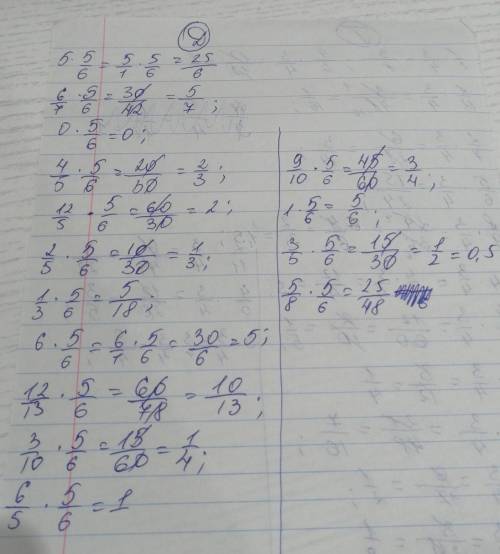 2
5 · 5/6 = 5/1 · 5/6 = 25/6
6/7 · 5/6 = 30/42 = 5/7;
0 · 5/6 = 0;
4/5 · 5/6 = 20/30 = 2/3;
12/5 · 5/6 = 60/30 = 2;
2/5 · 5/6 = 10/30 = 1/3;
1/3 · 5/6 = 5/18;
6 · 5/6 = 6/7 · 5/6 = 30/6 = 5;
12/13 · 5/6 = 60/78 = 10/13;
3/10 · 5/6 = 15/60 = 1/4;
6/5 · 5/6 = 1
9/10 · 5/6 = 45/60 = 3/4;
1 · 5/6 = 5/6;
3/5 · 5/6 = 15/30 = 1/2 = 0,5
5/8 · 5/6 = 25/48